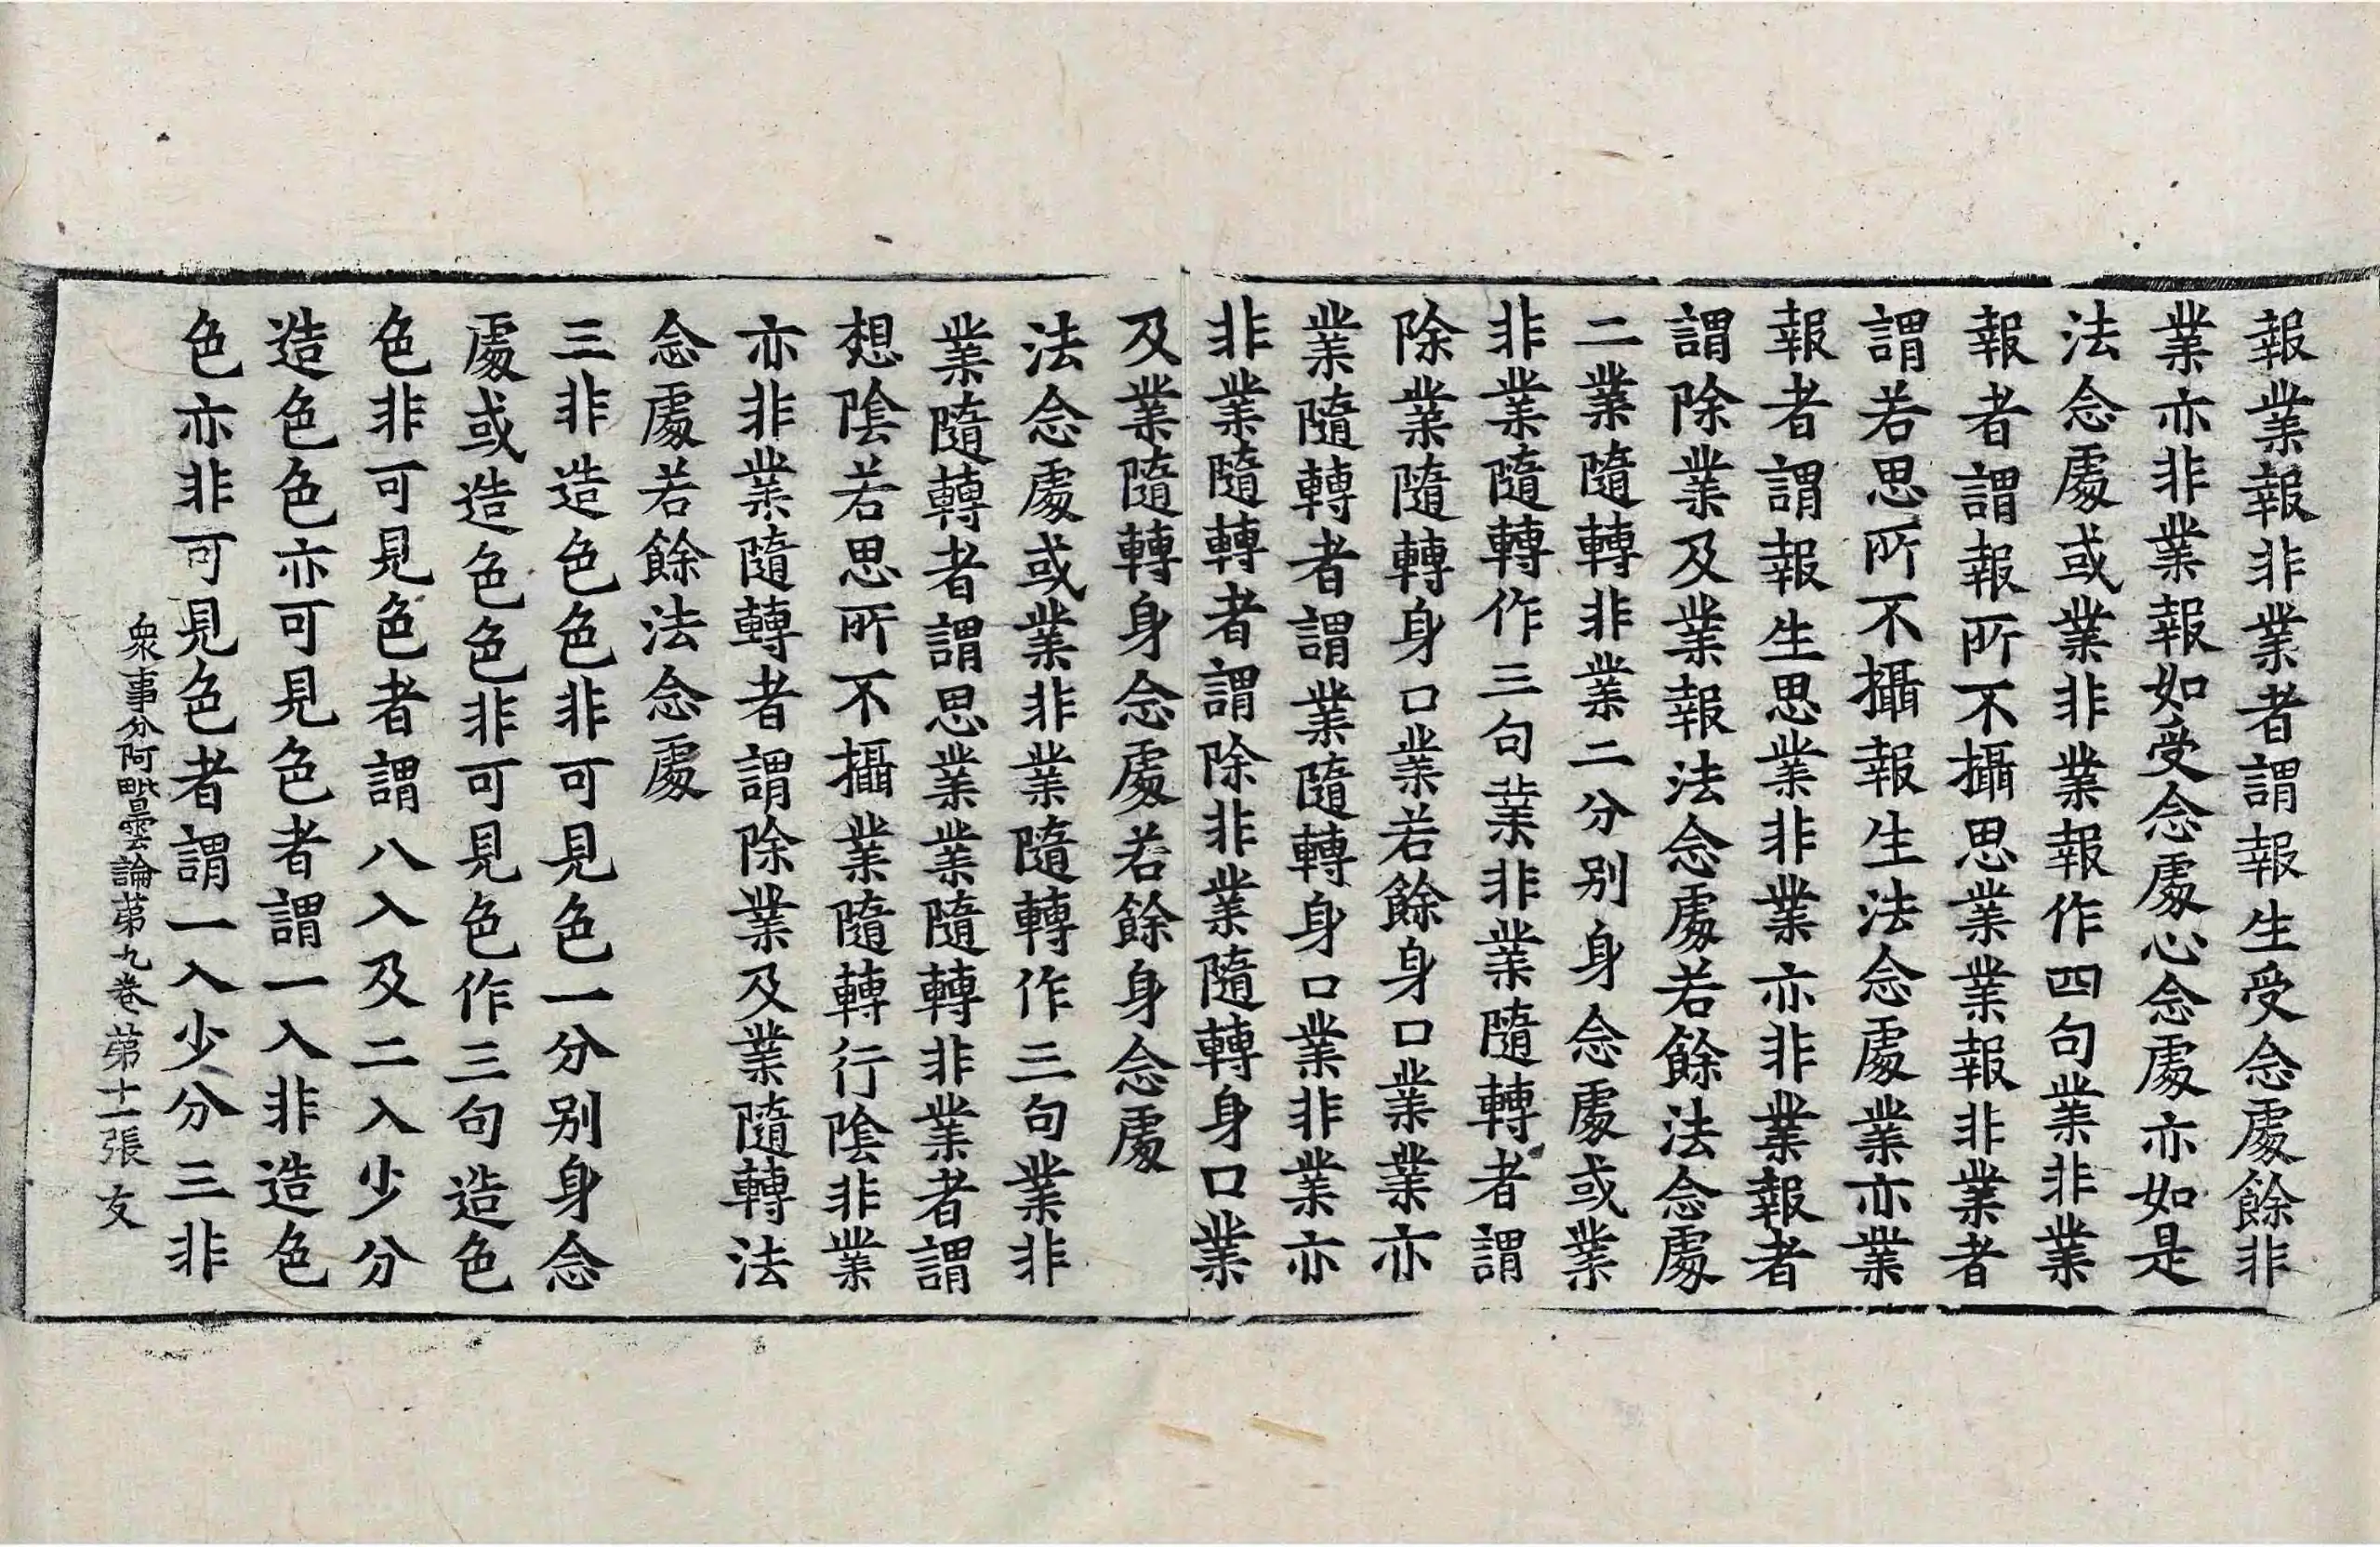 報業報非業者謂報生受念處餘非
業亦非業報如受念處心念處亦如是
法念處或業非業報作四句業非業
報者謂報所不攝思業業報非業者
謂若思所不攝報生法念處業亦業
報者謂報生思業非業亦非業報者
謂除業及業報法念處若餘法念處
二業隨轉非業二分別身念處或業
非業隨轉作三句業非業隨轉者謂
除業隨轉身口業若餘身口業業亦
業隨轉者謂業隨轉身口業非業亦
非業隨轉者謂除非業隨轉身口業
及業隨轉身念處若餘身念處
法念處或業非業隨轉作三句業非
業隨轉者謂思業業隨轉非業者謂
想陰若思所不攝業隨轉行陰非業
亦非業隨轉者謂除業及業隨轉法
念處若餘法念處
三非造色色非可見色一分別身念
處或造色色非可見色作三句造色
色非可見色者謂八入及二入少分
造色色亦可見色者謂一入非造色
色亦非可見色者謂一入少分三非
衆事分阿毗曇論苐九卷 苐十一張 友